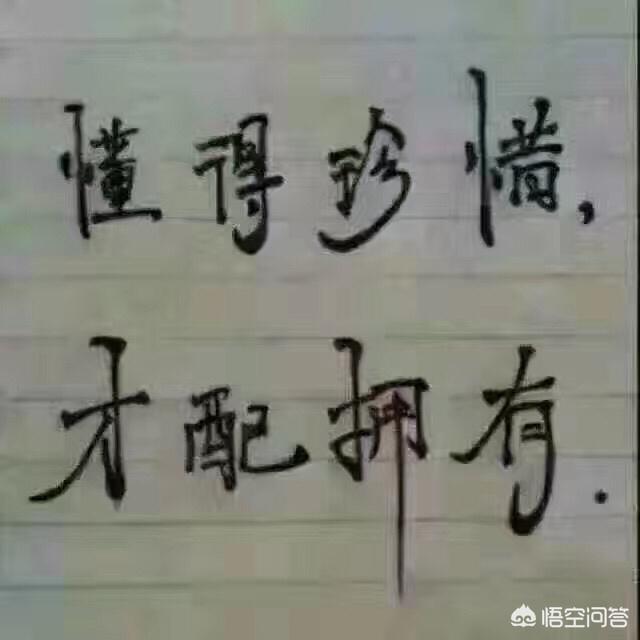 懂得珍惜,
才配拥有.
悟空问答